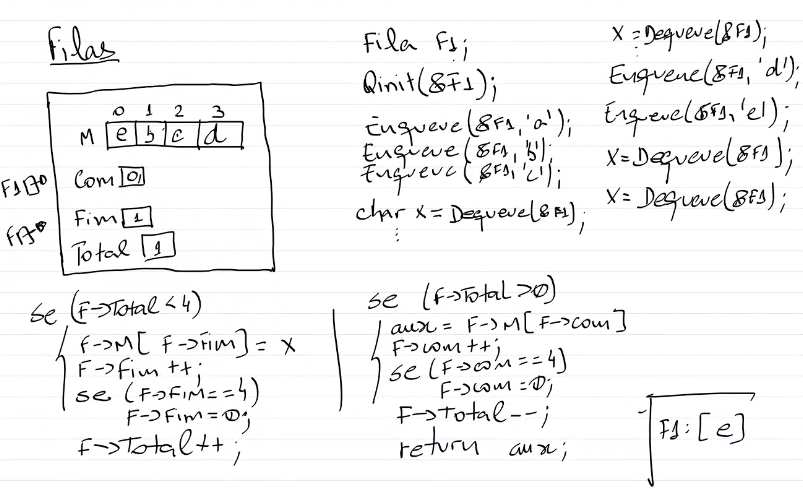 Filas
0 1 2 3
M e b c d
Com 0
Fim 1
Total 1
Fila F1;
Qinit(&F1);
Enqueue(&F1,'a');
Enqueue(&F1,'b');
Enqueue(&F1,'c');
char x = Dequeue(&F1);
⋮
x = Dequeue(&F1);
Enqueue(&F1,'d');
Enqueue(&F1,'e');
x = Dequeue(&F1);
x = Dequeue(&F1);
se (F->Total < 4)
F->M[F->Fim] = x
F->Fim++;
se (F->FIM==4)
F->Fim=0;
F->Total++;
se (F->Total>0)
aux = F->M[F->com]
F->com++;
se (F->com==4]
F->com=0;
F->Total--;
return aux;
F1: [e]